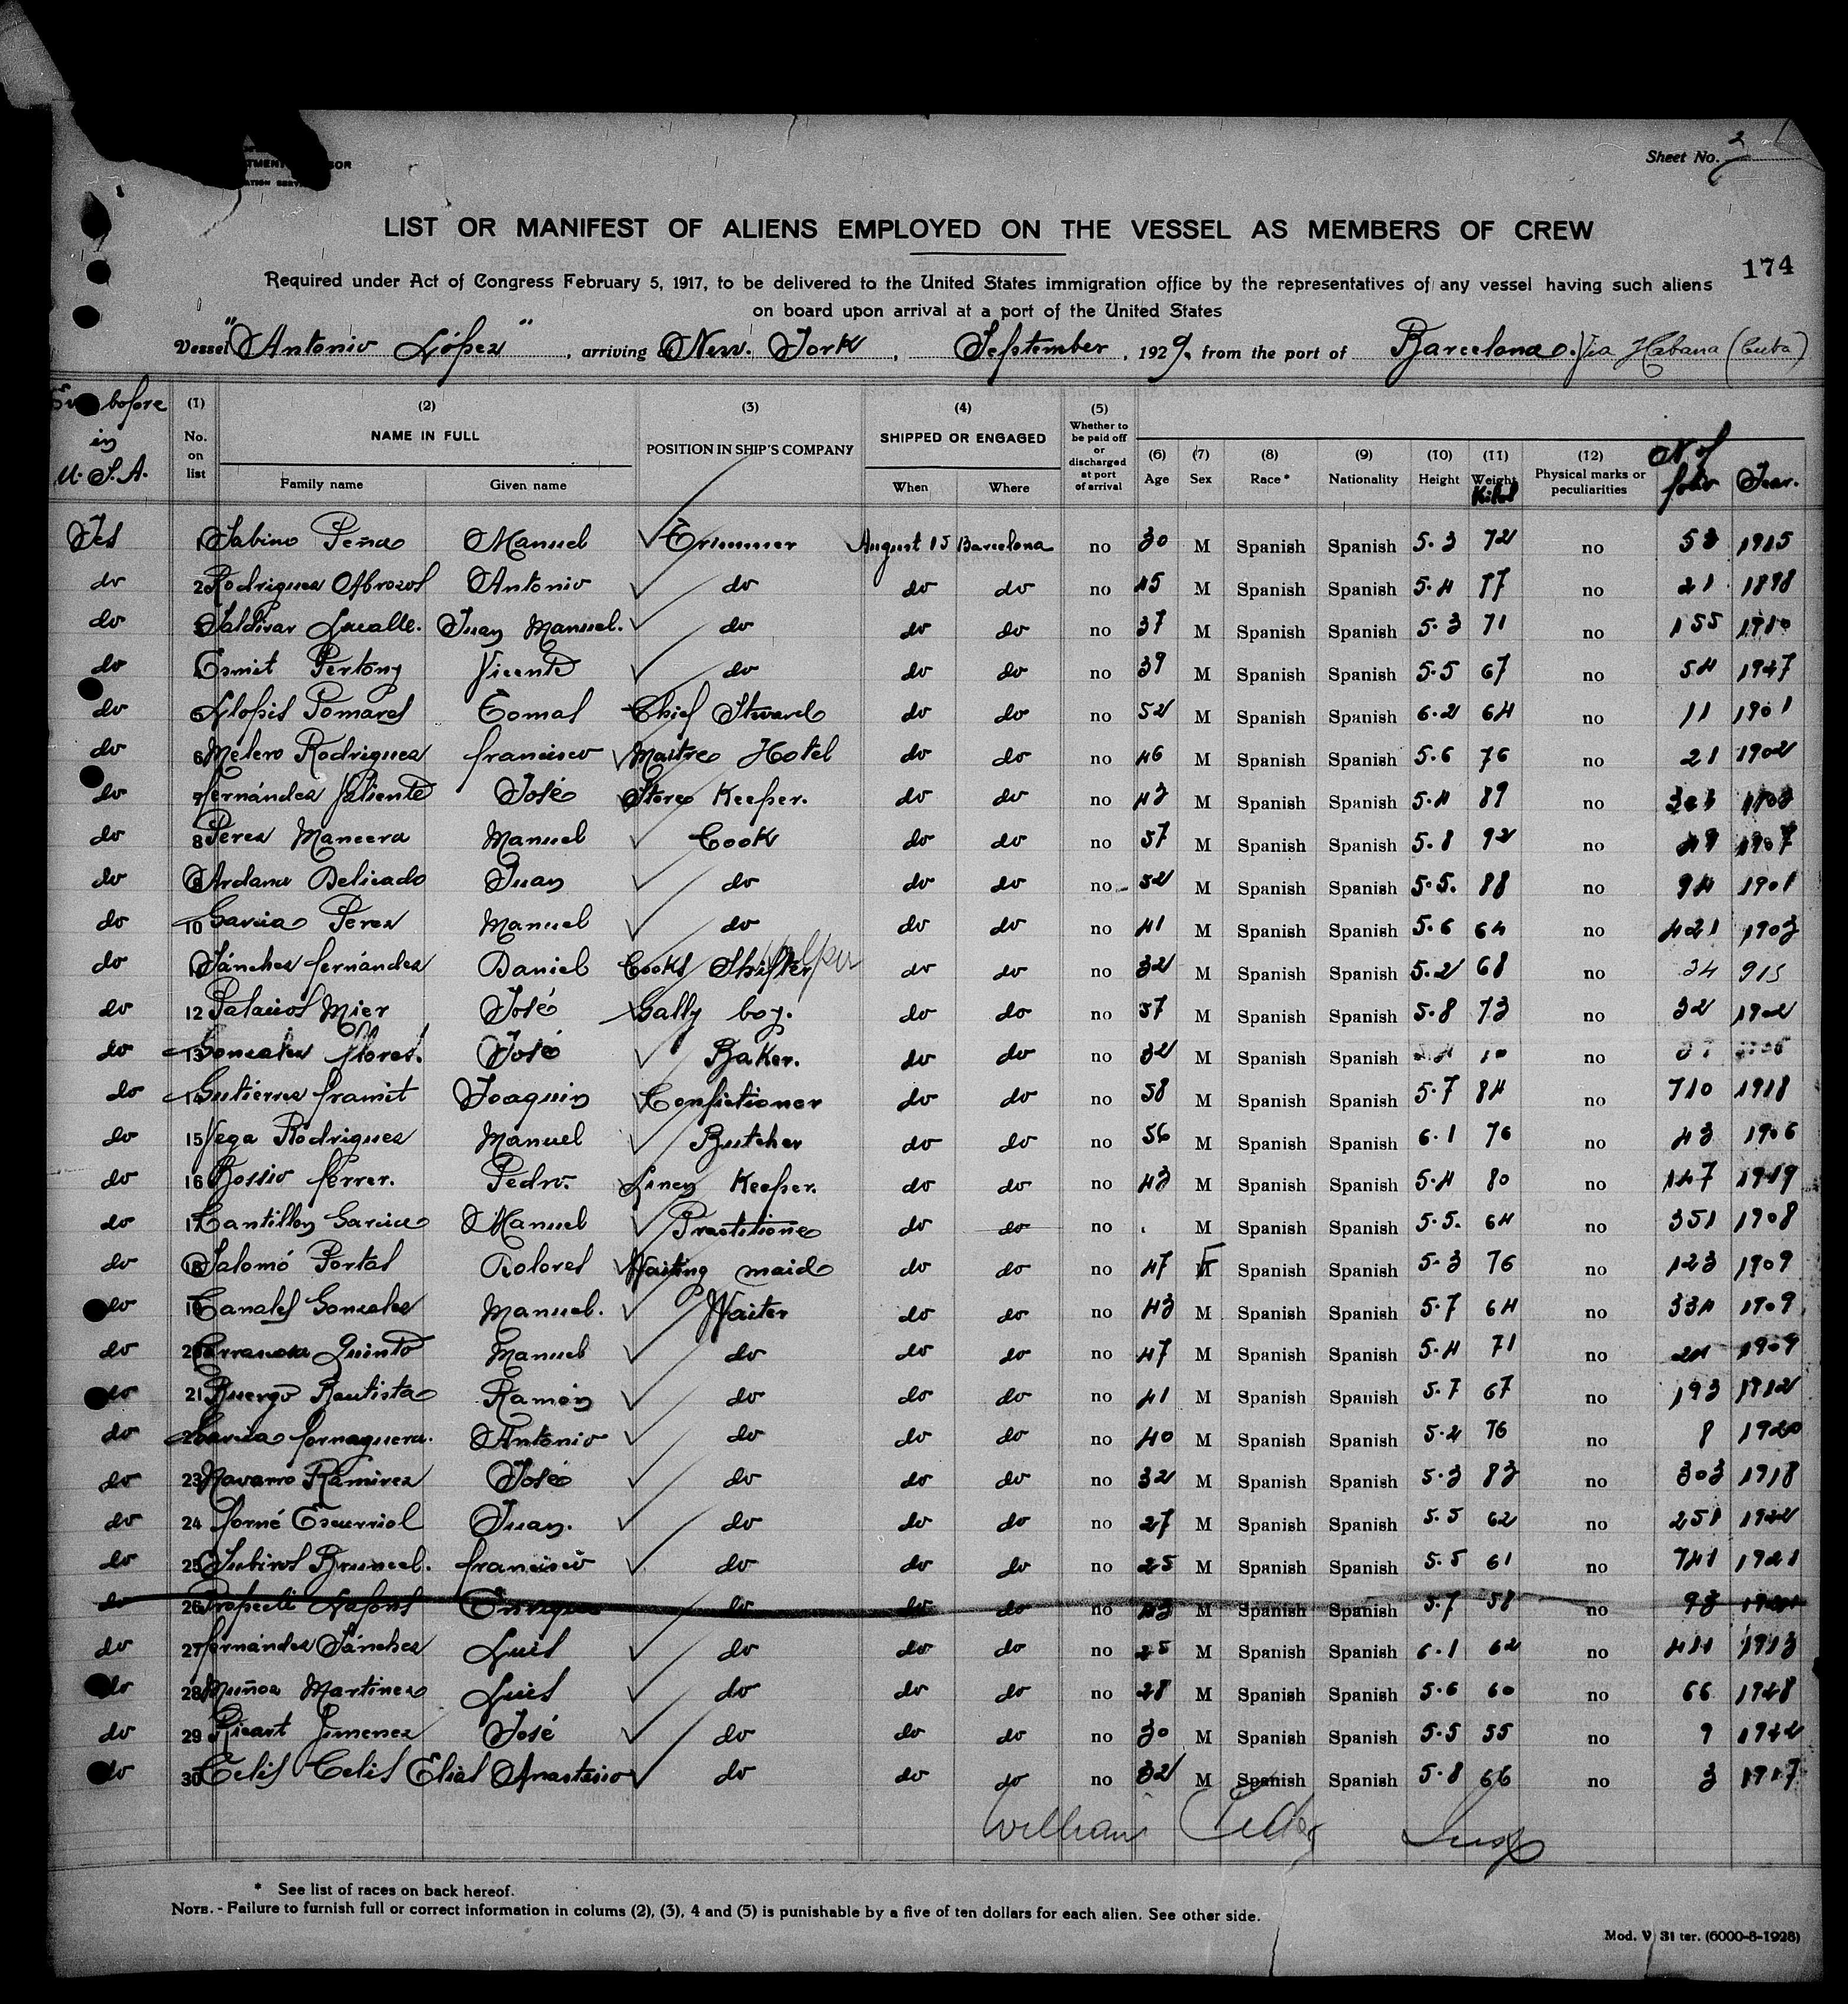 Sheet No. 3
LIST OR MANIFEST OF ALIENS EMPLOYED ON THE VESSEL AS MEMBERS OF CREW
174
Required under Act of Congress February 5, 1917, to be delivered to the United States immigration office by the representatives of any vessel having such aliens
on board upon arrival at a port of the United States
Vessel "Antonio López", arriving at New. York, September, 1929, from the port of Barcelona. Via Habana (Cuba)
before in U.S.A.
(1) No. on list (2) NAME IN FULL Family name Given name (3) POSITION IN SHIP'S COMPANY (4) SHIPPED OR ENGAGED When Where (5) Whether to be paid off or discharged at port of arrival (6) Age (7) Sex (8) Race* (9) Nationality (10) Height (11) Weight Kilos (12) Physical marks or peculiarities Nº of folio Year.
Yes 1 Sabino Pena Manuel Trimmer August 15 Barcelona no 30 M Spanish Spanish 5.3 72 no 53 1915
do 2 Rodriguez Antonio do do do no 45 M Spanish Spanish 5.4 77 no 21 1898
do Saldivar Lacalle. Juan Manuel. do do do no 37 M Spanish Spanish 5.3 71 no 155 1910
do Esmit Pertony Vicente do do do no 39 M Spanish Spanish 5.5 67 no 54
do Llopis Pomares Tomas Chief Steward do do no 52 M Spanish Spanish 6.2 64 no 11 1901
do 6 Melero Rodriguez francisco Maitre Hotel do do no 46 M Spanish Spanish 5.6 76 no 21 1902
do 7 fernández Valiente José Store Keeper. do do no 43 M Spanish Spanish 5.4 89 no
do 8 Perez Maneera Manuel Cook do do no 57 M Spanish Spanish 5.8 92 no 1907
do 9 Ardana Delicado Juan do do do no 52 M Spanish Spanish 5.5. 88 no 94 1901
do 10 Garcia Perez Manuel do do do no 41 M Spanish Spanish 5.6 64 no 421 1903
do Sánchez fernández Daniel Cooks do do no 32 M Spanish Spanish 5.2 68 no 34 915
do 12 Palacios Mier José Gally boy. do do no 57 M Spanish Spanish 5.8 73 no 32 1902
do 13 Gonzalez flores. José Baker. do do no 32 M Spanish Spanish no
do 14 Gutierrez framit Joaquin Confictioner do do no 58 M Spanish Spanish 5.7 84 no 710 1918
do 15 Vega Rodriguez Manuel Butcher do do no 56 M Spanish Spanish 6.1 76 no 43 1906
do 16 Bossio ferrer. Pedro. Linen Keeper. do do no 43 M Spanish Spanish 5.4 80 no 147 1919
do 17 Cantillon Garcia Manuel Practitione do do no M Spanish Spanish 5.5. 64 no 351 1908
do 18 Salomó Portas Dolores Waiting maid do do no 47 F Spanish Spanish 5.3 76 no 123 1909
do 19 Canales Gonzalez Manuel. Waiter do do no 43 M Spanish Spanish 5.7 64 no 334 1909
do 20 Carranza Quinto Manuel do do do no 47 M Spanish Spanish 5.4 71 no 1909
do 21 Buergo Bautista Ramón do do do no 41 M Spanish Spanish 5.7 67 no 193 1912
do Garcia fornaguera. Antonio do do do no 40 M Spanish Spanish 5.4 76 no 8 1920
do 23 Navarro Ramirez José do do do no 32 M Spanish Spanish 5.3 83 no 303 1918
do 24 forné Escurriol Juan. do do do no 27 M Spanish Spanish 5.5 62 no 251 1922
do 25 Subiros Brunel. francisco do do do no 25 M Spanish Spanish 5.5 61 no 741 1921
do 26 Lafont Enrique do do do no 43 M Spanish Spanish 5.7 58 no 93
do 27 fernández Sánchez Luis do do do no 25 M Spanish Spanish 6.1 62 no 414 1913
do 28 Muñoz Martinez Luis do do do no 28 M Spanish Spanish 5.6 60 no 66 1928
do 29 Ricart Jimenez José do do do no 30 M Spanish Spanish 5.5 55 no 9 1922
do 30 Celis Celis Elias Anastasio do do do no 32 M Spanish Spanish 5.8 66 no 3 1917
William
* See list of races on back hereof.
NOTE. - Failure to furnish full or correct information in colums (2), (3), 4 and (5) is punishable by a five of ten dollars for each alien. See other side.
Mod. V 31 ter. (6000-8-1928)